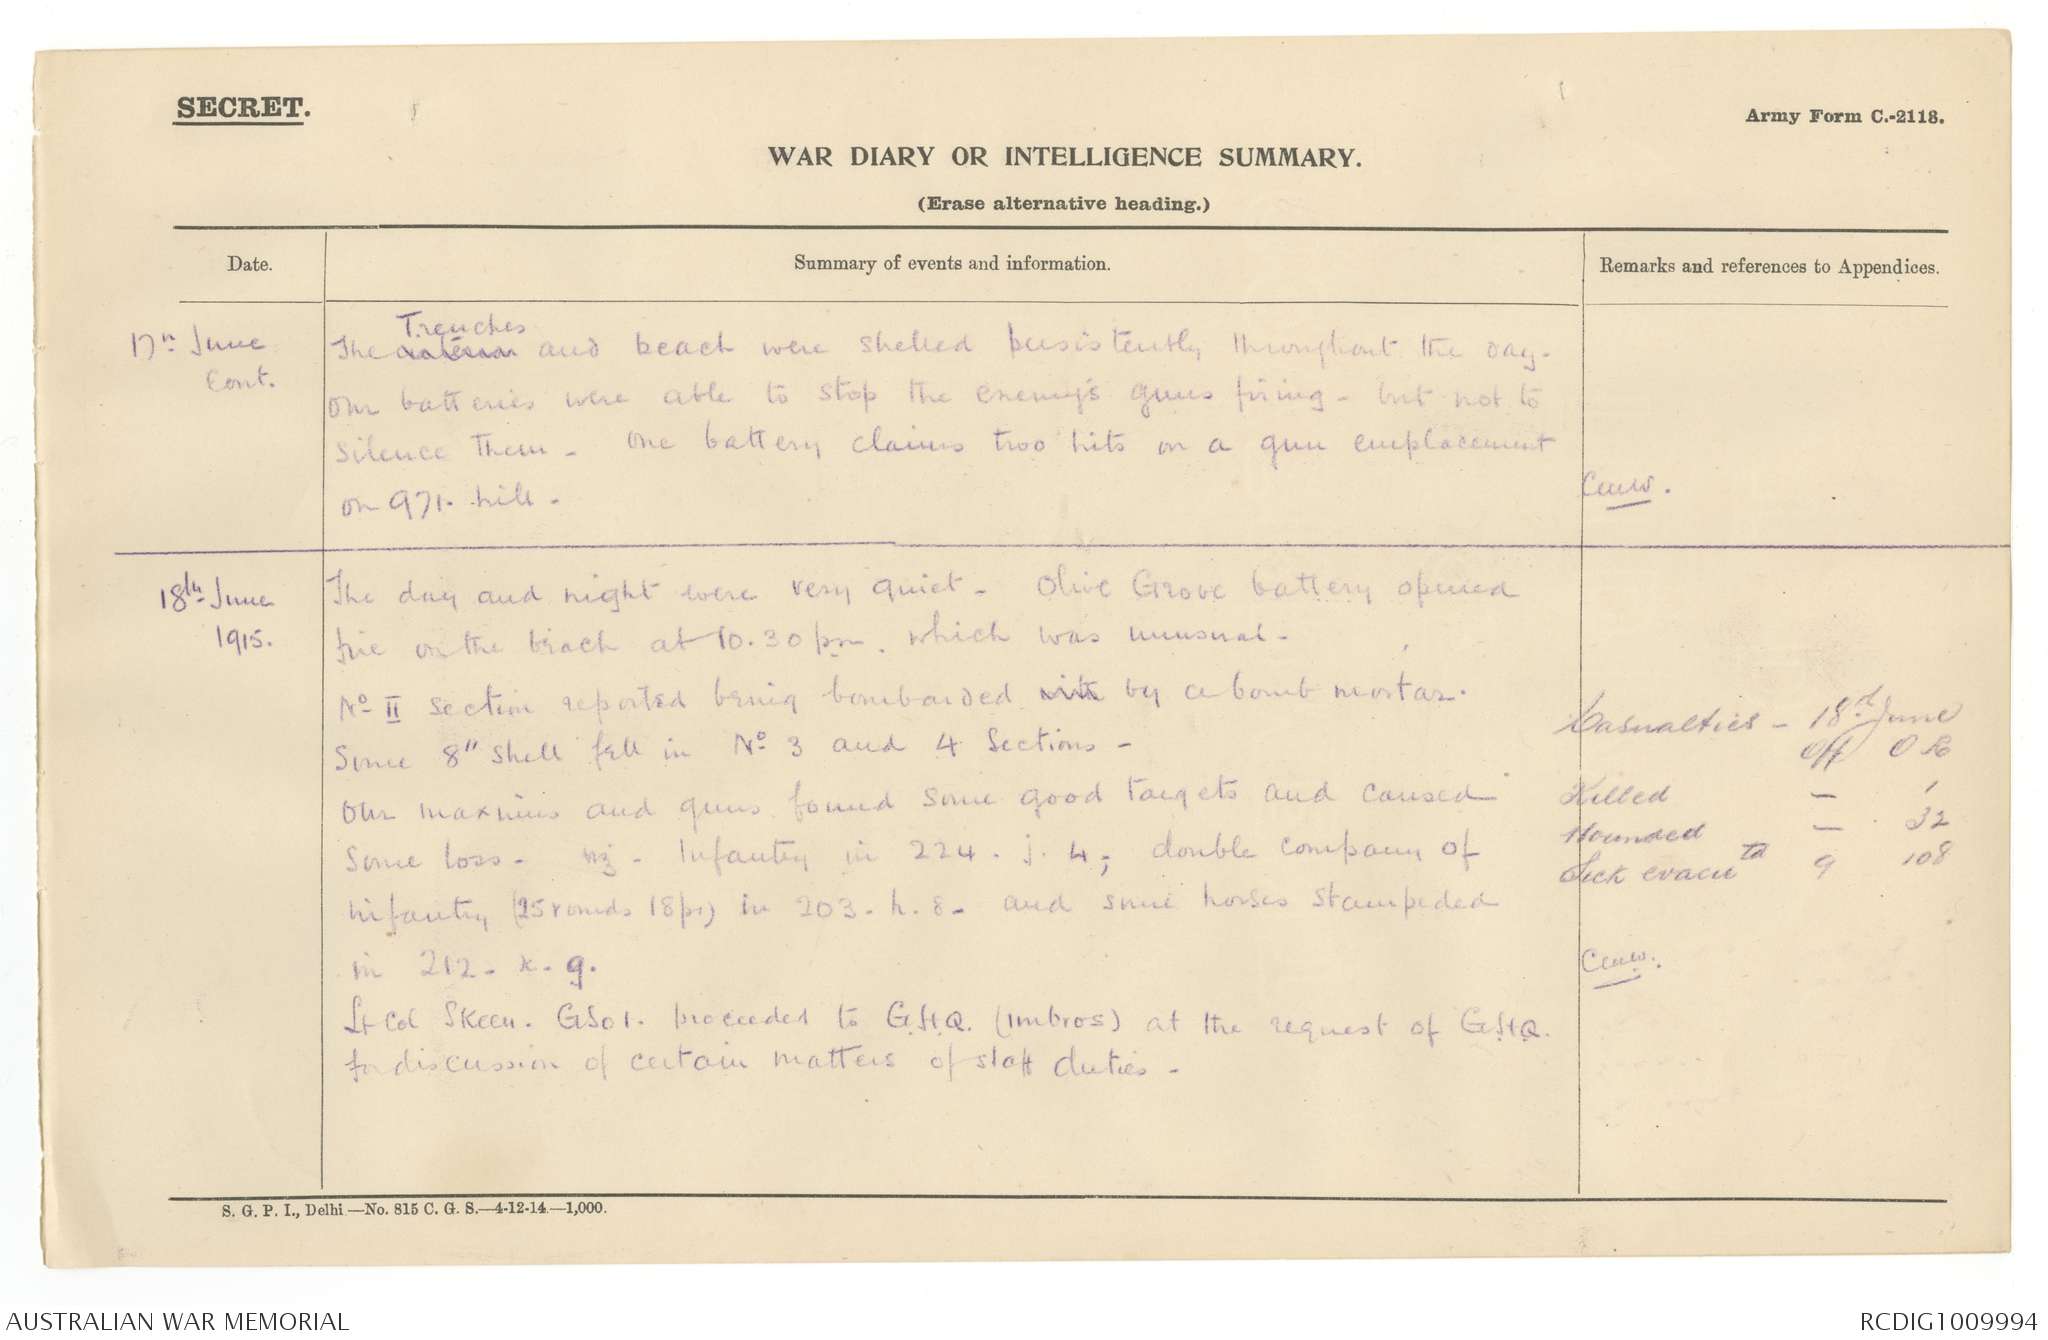 SECRET.
Army Form C.-2118.
WAR DIARY OR INTELLIGENCE SUMMARY.
(Erase alternative heading.)
Date.
Summary of events and information.
Remarks and references to Appendices.
17th June
Cont.
Trenches
The and beach were shelled persistently throughout the day.
Our batteries were able to stop the enemy's guns firing - but not to
silence them - One battery claims two hits on a gun emplacement
on 971. hill -
18th June
1915.
The day and night were very quiet - Olive Grove battery opened
fire on the beach at 10.30 pm. which was unusual -
No II section reported being bombarded with by a bomb mortar.
Some 8" shell fell in No 3 and 4 Sections -
Our maxims and guns found some good targets and caused
some loss - viz - Infantry in 224. j. 4; double company of
infantry (25 rounds 18pr) in 203. h. 8 - and some horses stampeded
in 212 - k - 9.
Lt Col Skeen. GSO1. proceeded to G.H.Q. (Imbros) at the request of G.H.Q.
for discussion of certain matters of staff duties -
Casualties - 18th June
Off OR
Killed - 1
Wounded - 32
Sick evacuted 9 108
S. G. P. I., Delhi—No. 815 C. G. S.—4-12-14—1,000.
AUSTRALIAN WAR MEMORIAL
RCDIG1009994